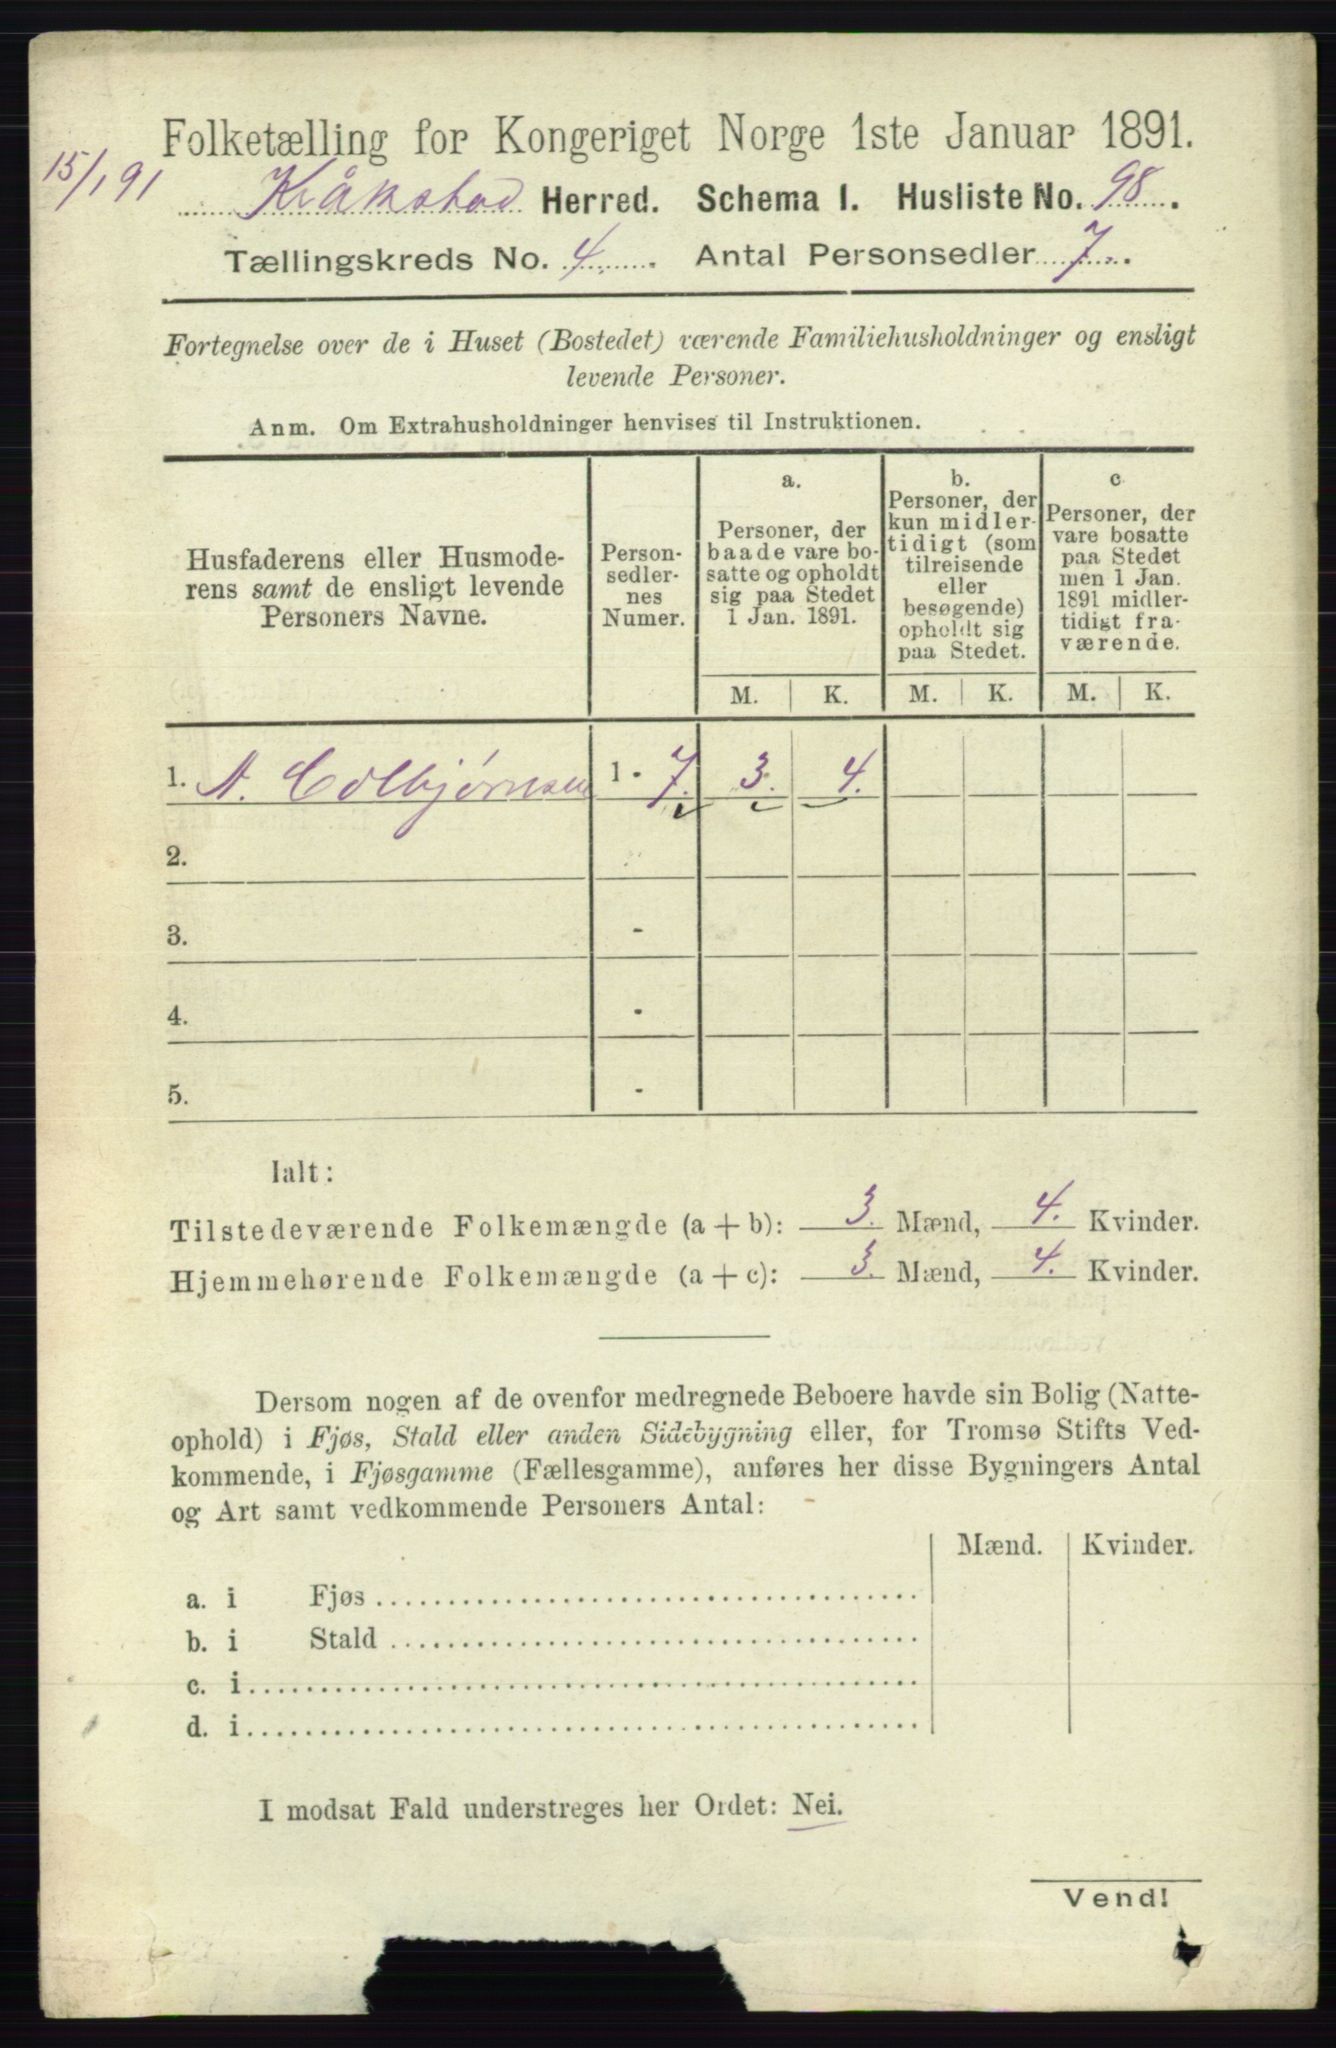 Folketælling for Kongeriget Norge 1ste Januar 1891.
15/1 91
Kråkstad Herred. Schema I. Husliste No. 98.
Tællingskreds No. 4. Antal Personsedler 7.
Fortegnelse over de i Huset (Bostedet) værende Familiehusholdninger og ensligt
levende Personer.
Anm. Om Extrahusholdninger henvises til Instruktionen.
Husfaderens eller Husmode-
rens samt de ensligt levende
Personers Navne.
Person-
sedler-
nes
Numer.
a.
Personer, der
baade vare bo-
satte og opholdt
sig paa Stedet
1 Jan. 1891.
b.
Personer, der
kun midler-
tidigt (som
tilreisende
eller
besøgende)
opholdt sig
paa Stedet.
c
Personer, der
vare bosatte
paa Stedet
men 1 Jan.
1891 midler-
tidigt fra-
værende.
M. K. M. K. M. K.
1. A. Colbjørnsen 1 - 7. 3. 4.
2.
3. -
4. -
5. -
Ialt:
Tilstedeværende Folkemængde (a + b): 3. Mænd, 4. Kvinder.
Hjemmehørende Folkemængde (a + c): 3. Mænd, 4. Kvinder.
Dersom nogen af de ovenfor medregnede Beboere havde sin Bolig (Natte-
ophold) i Fjøs, Stald eller anden Sidebygning eller, for Tromsø Stifts Ved-
kommende, i Fjøsgamme (Fællesgamme), anføres her disse Bygningers Antal
og Art samt vedkommende Personers Antal:
Mænd. Kvinder.
a. i Fjøs
b. i Stald
c. i
d. i
I modsat Fald understreges her Ordet: Nei.
Vend!